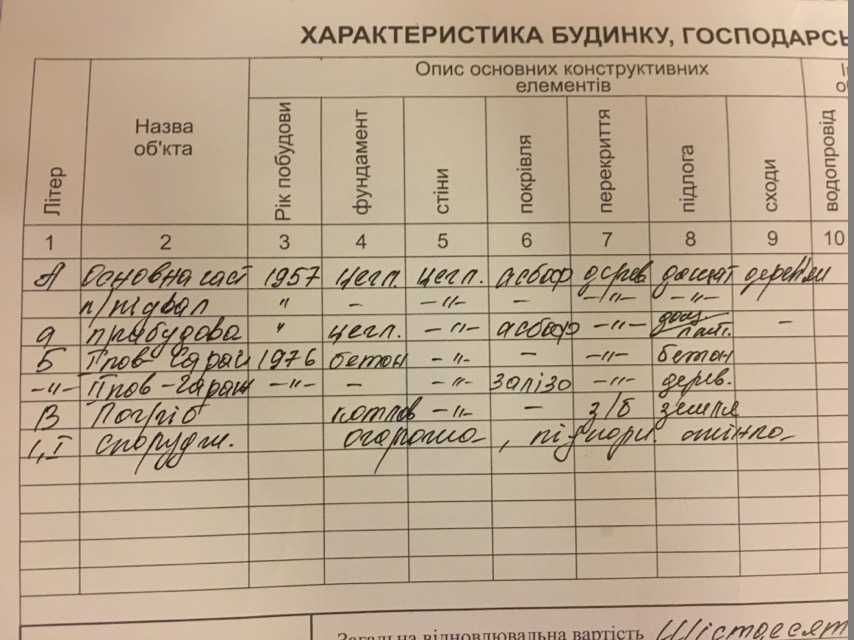 ХАРАКТЕРИСТИКА БУДИНКУ, ГОСПОДАРСЬ
Літер
Назва
об'єкта
Опис основних конструктивних
елементів
Рік побудови
фундамент
стіни
покрівля
перекриття
підлога
сходи
водопровід
1 2 3 4 5 6 7 8 9 10
А Основна част 1957 цегл. цегл. асбоф дерев. дощат деревян
п/підвал " – –"– – –"– –"–
а прибудова " цегл. –"– асбоф –"– –
Б І пов-Гараж 1976 бетон –"– – –"– бетон
–"– ІІ пов-Гараж –"– – –"– залізо –"– дерев.
В Погріб котлов –"– – з/б земля
1, І споруди. огорожа, підпорн. стінка
Загальна відновлювальна вартість Шістдесят